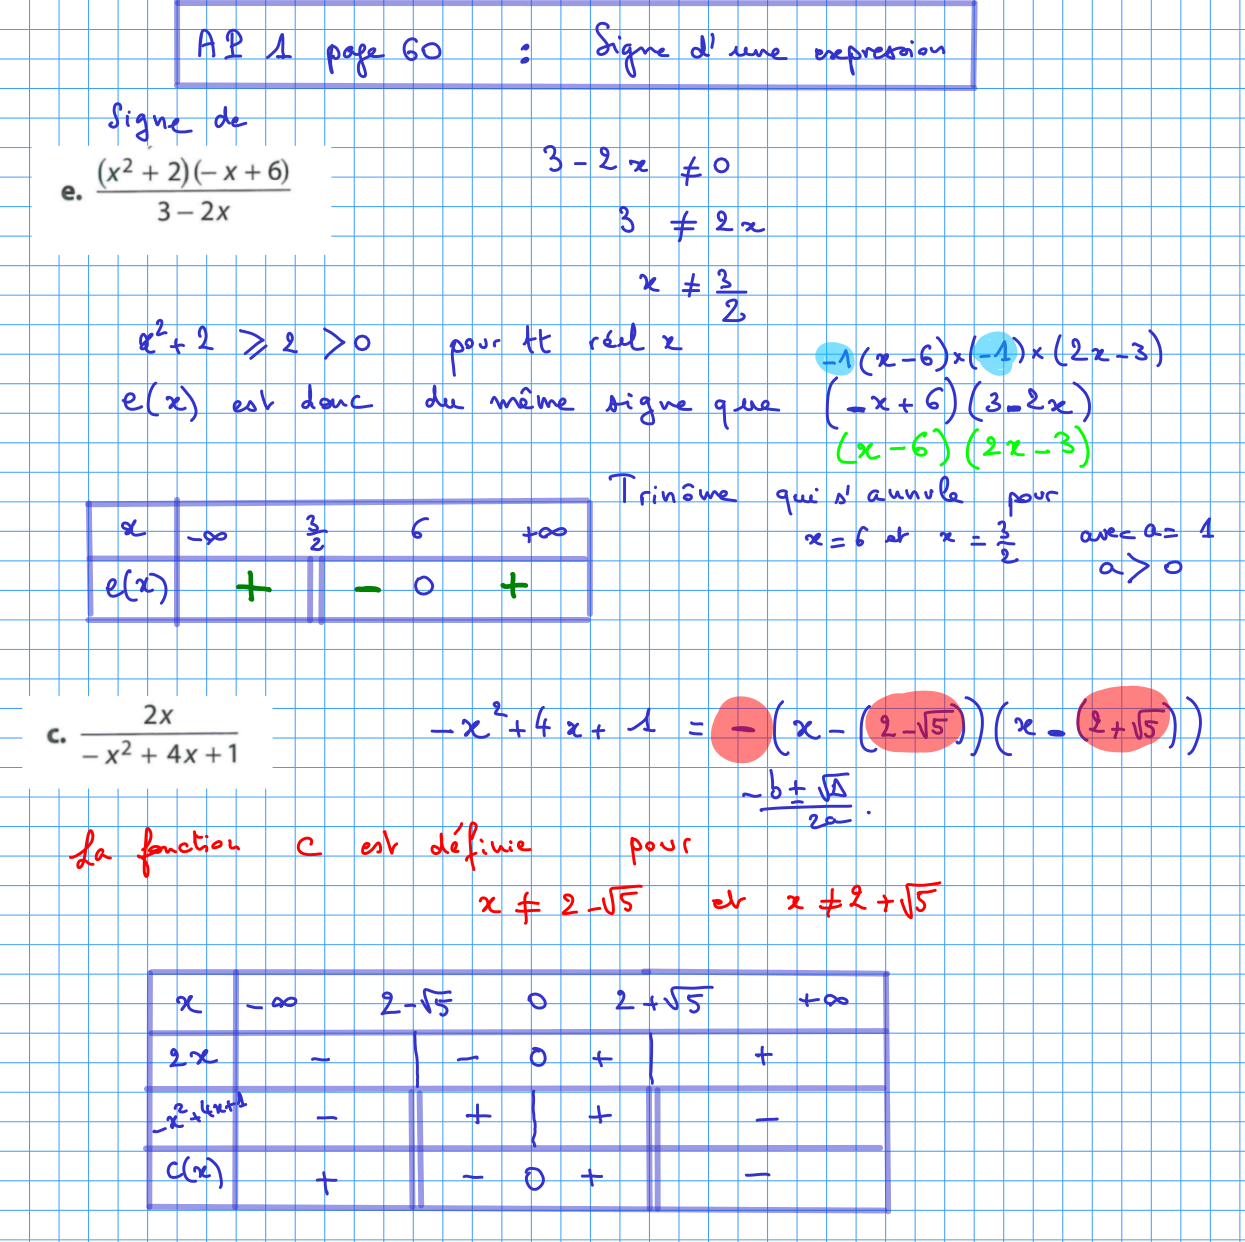 AP 1 page 60 : Signe d'une expression
Signe de
e. (x² + 2)(– x + 6) / 3 – 2x
3 - 2x ≠ 0
3 ≠ 2x
x ≠ 3/2
x² + 2 ⩾ 2 > 0 pour tt réel x
-1(x-6)×(-1)×(2x-3)
e(x) est donc du même signe que (-x+6)(3-2x)
(x-6)(2x-3)
Trinôme qui s'annule pour
x = 6 et x = 3/2 avec a = 1
a > 0
x -∞ 3/2 6 +∞
e(x) + || - 0 +
c. 2x / – x² + 4x + 1
-x² + 4x + 1 = -(x-(2-√5))(x-(2+√5))
-b ± √Δ / 2a .
La fonction C est définie pour
x ≠ 2-√5 et x ≠ 2+√5
x -∞ 2-√5 0 2+√5 +∞
2x - | - 0 + | +
-x²+4x+1 - || + | + || -
C(x) + || - 0 + || -